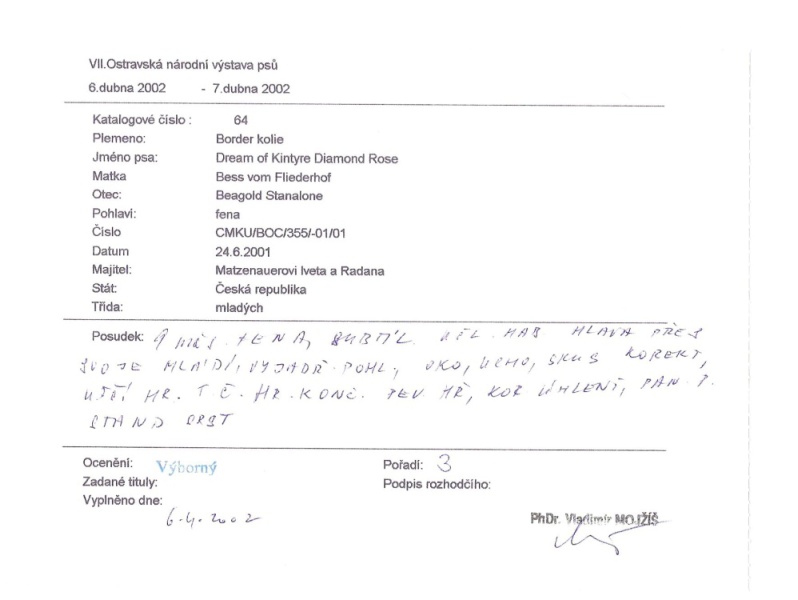 VII.Ostravská národní výstava psů
6.dubna 2002 - 7.dubna 2002
Katalogové číslo : 64
Plemeno: Border kolie
Jméno psa: Dream of Kintyre Diamond Rose
Matka Bess vom Fliederhof
Otec: Beagold Stanalone
Pohlavi: fena
Číslo CMKU/BOC/355/-01/01
Datum 24.6.2001
Majitel: Matzenauerovi Iveta a Radana
Stát: Česká republika
Třída: mladých
Posudek: 9 MĚS. FENA, HLAVA PŘES
SVOJE MLÁDÍ, VYJADŘ. POHL, OKO, UCHO, SKUS KOREKT,
HR. HR. KONČ. KOR ÚHLENÍ,
STAND SRST
Ocenění: Výborný Pořadí: 3
Zadané tituly: Podpis rozhodčího:
Vyplněno dne:
6.4.2002
PhDr. Vladimír MOJŽÍŠ